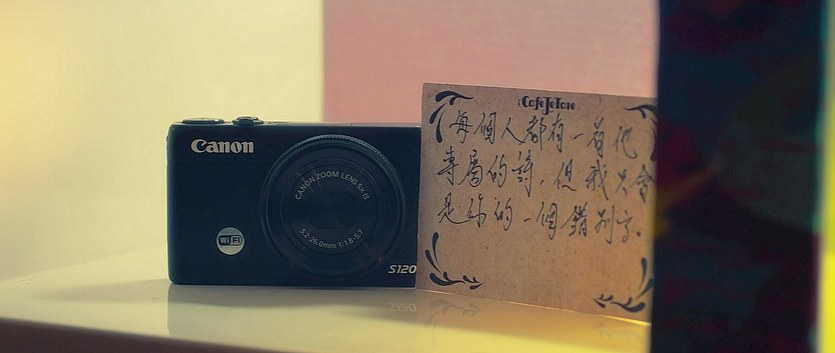 Canon
CANON ZOOM LENS 5x IS
5.2-26.0mm 1:1.8-5.7
Wi Fi
S120
Cafe JeTaie
每個人都有一首他
專屬的詩，但我只會
是你的一個錯別字．